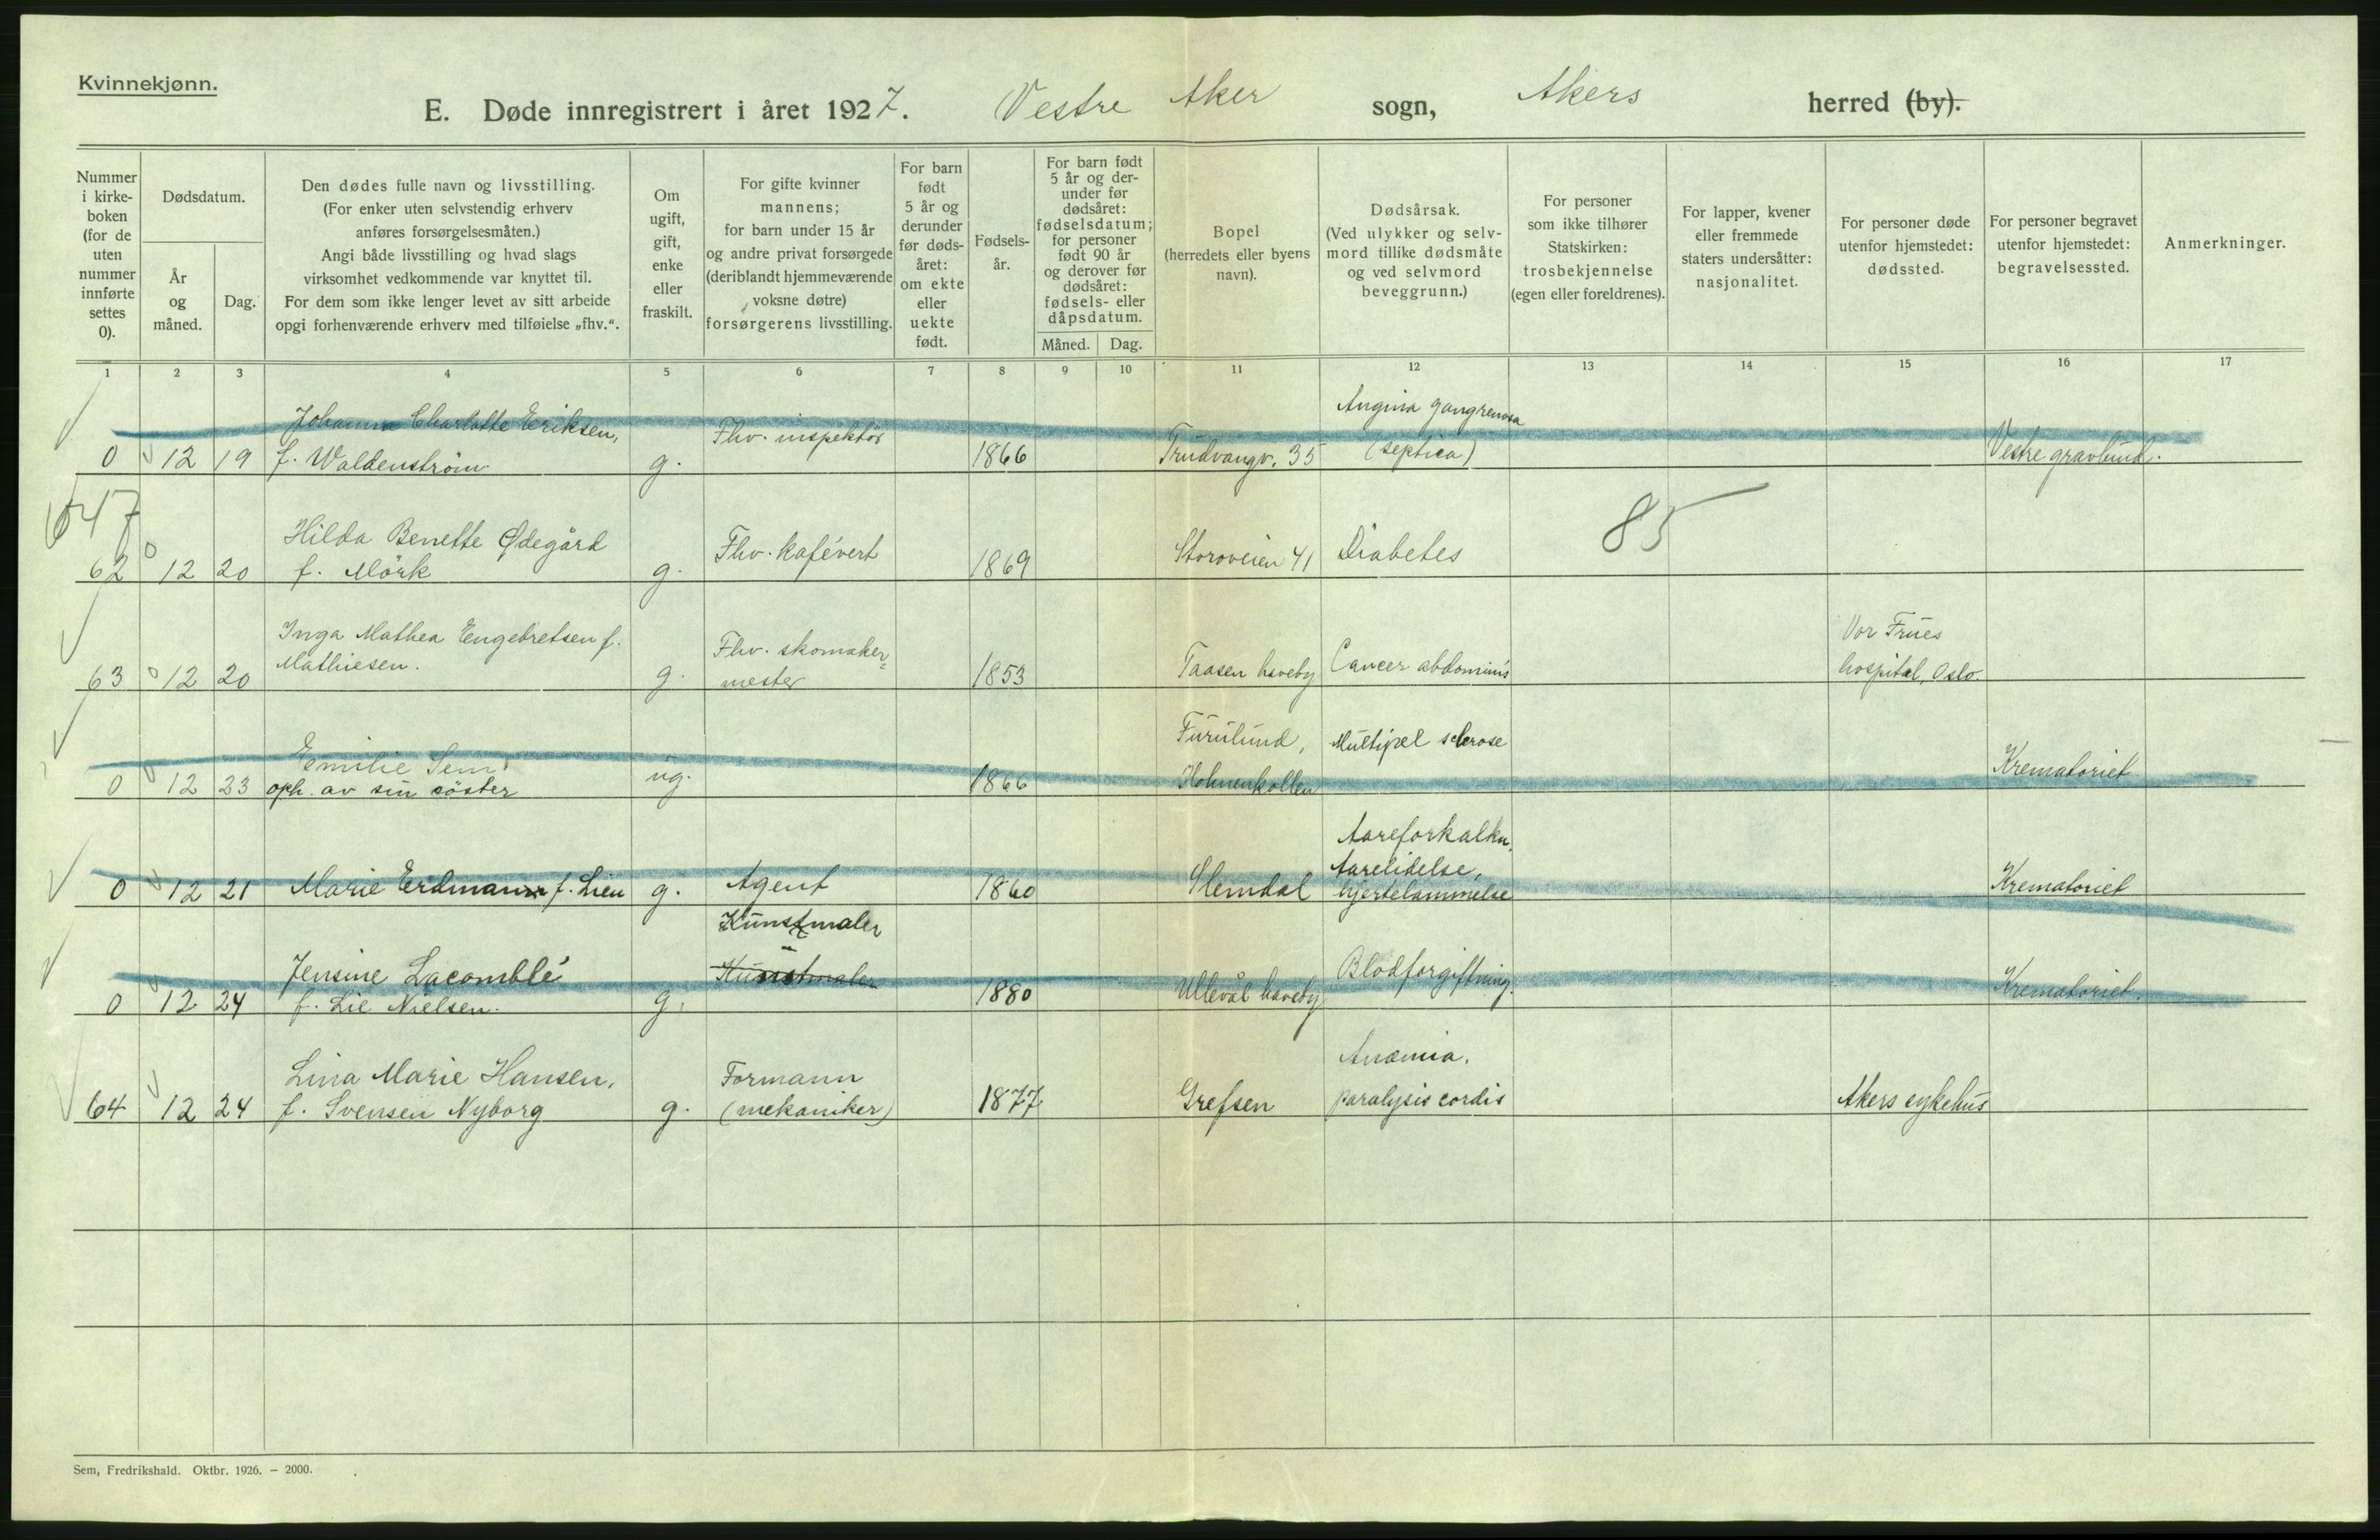 Kvinnekjønn.
E. Døde innregistrert i året 1927. Vestre Aker sogn, Akers herred (by).
Nummer i kirkeboken (for de uten nummer innførte settes 0).
Dødsdatum.
År og måned.
Dag.
Den dødes fulle navn og livsstilling.
(For enker uten selvstendig erhverv
anføres forsørgelsesmåten.)
Angi både livsstilling og hvad slags
virksomhet vedkommende var knyttet til.
For dem som ikke lenger levet av sitt arbeide
opgi forhenværende erhverv med tilføielse „fhv.“.
Om
ugift,
gift,
enke
eller
fraskilt.
For gifte kvinner
mannens;
for barn under 15 år
og andre privat forsørgede
(deriblandt hjemmeværende
voksne døtre)
forsørgerens livsstilling.
For barn
født
5 år og
derunder
før døds-
året:
om ekte
eller
uekte
født.
Fødsels-
år.
For barn født
5 år og der-
under før
dødsåret:
fødselsdatum;
for personer
født 90 år
og derover før
dødsåret:
fødsels- eller
dåpsdatum.
Måned. Dag.
Bopel
(herredets eller byens
navn).
Dødsårsak.
(Ved ulykker og selv-
mord tillike dødsmåte
og ved selvmord
beveggrunn.)
For personer
som ikke tilhører
Statskirken:
trosbekjennelse
(egen eller foreldrenes).
For lapper, kvener
eller fremmede
staters undersåtter:
nasjonalitet.
For personer døde
utenfor hjemstedet:
dødssted.
For personer begravet
utenfor hjemstedet:
begravelsessted.
Anmerkninger.
1 2 3 4 5 6 7 8 9 10 11 12 13 14 15 16 17
Johanna Charlotte Eriksen, Fhv. inspektör Angina gangrenosa
0 12 19 f. Waldenström g. 1866 Trudvangv. 35 (septica) Vestre gravlund.
647 85
Hilda Benette Ødegård Fhv. kafévert
62 12 20 f. Mörk g. 1869 Storoveien 41 Diabetes
Inga Mathea Engebretsen f. Fhv. skomaker= Vor Frues
63 12 20 Mathiesen. g. mester 1853 Taasen haveby Cancer abdominis hospital, Oslo.
Emilie Sem Furulund, Multipel sclerose
0 12 23 oph. av sin söster ug. 1866 Holmenkollen Krematoriet
Aareforkalkn.
Aarelidelse,
0 12 21 Marie Erdmann f. Lien g. Agent 1860 Slemdal hjertelammelse Krematoriet
Kunstmaler
Jensine Lacomblé Kunstmaler Blodforgiftning.
0 12 24 f. Lie Nielsen. g. 1880 Ullevål haveby Krematoriet.
Lina Marie Hansen, Formann Anæmia.
64 12 24 f. Svensen Nyborg g. (mekaniker) 1877 Grefsen paralysis cordis Akers sykehus
Sem, Fredrikshald. Oktbr. 1926. – 2000.